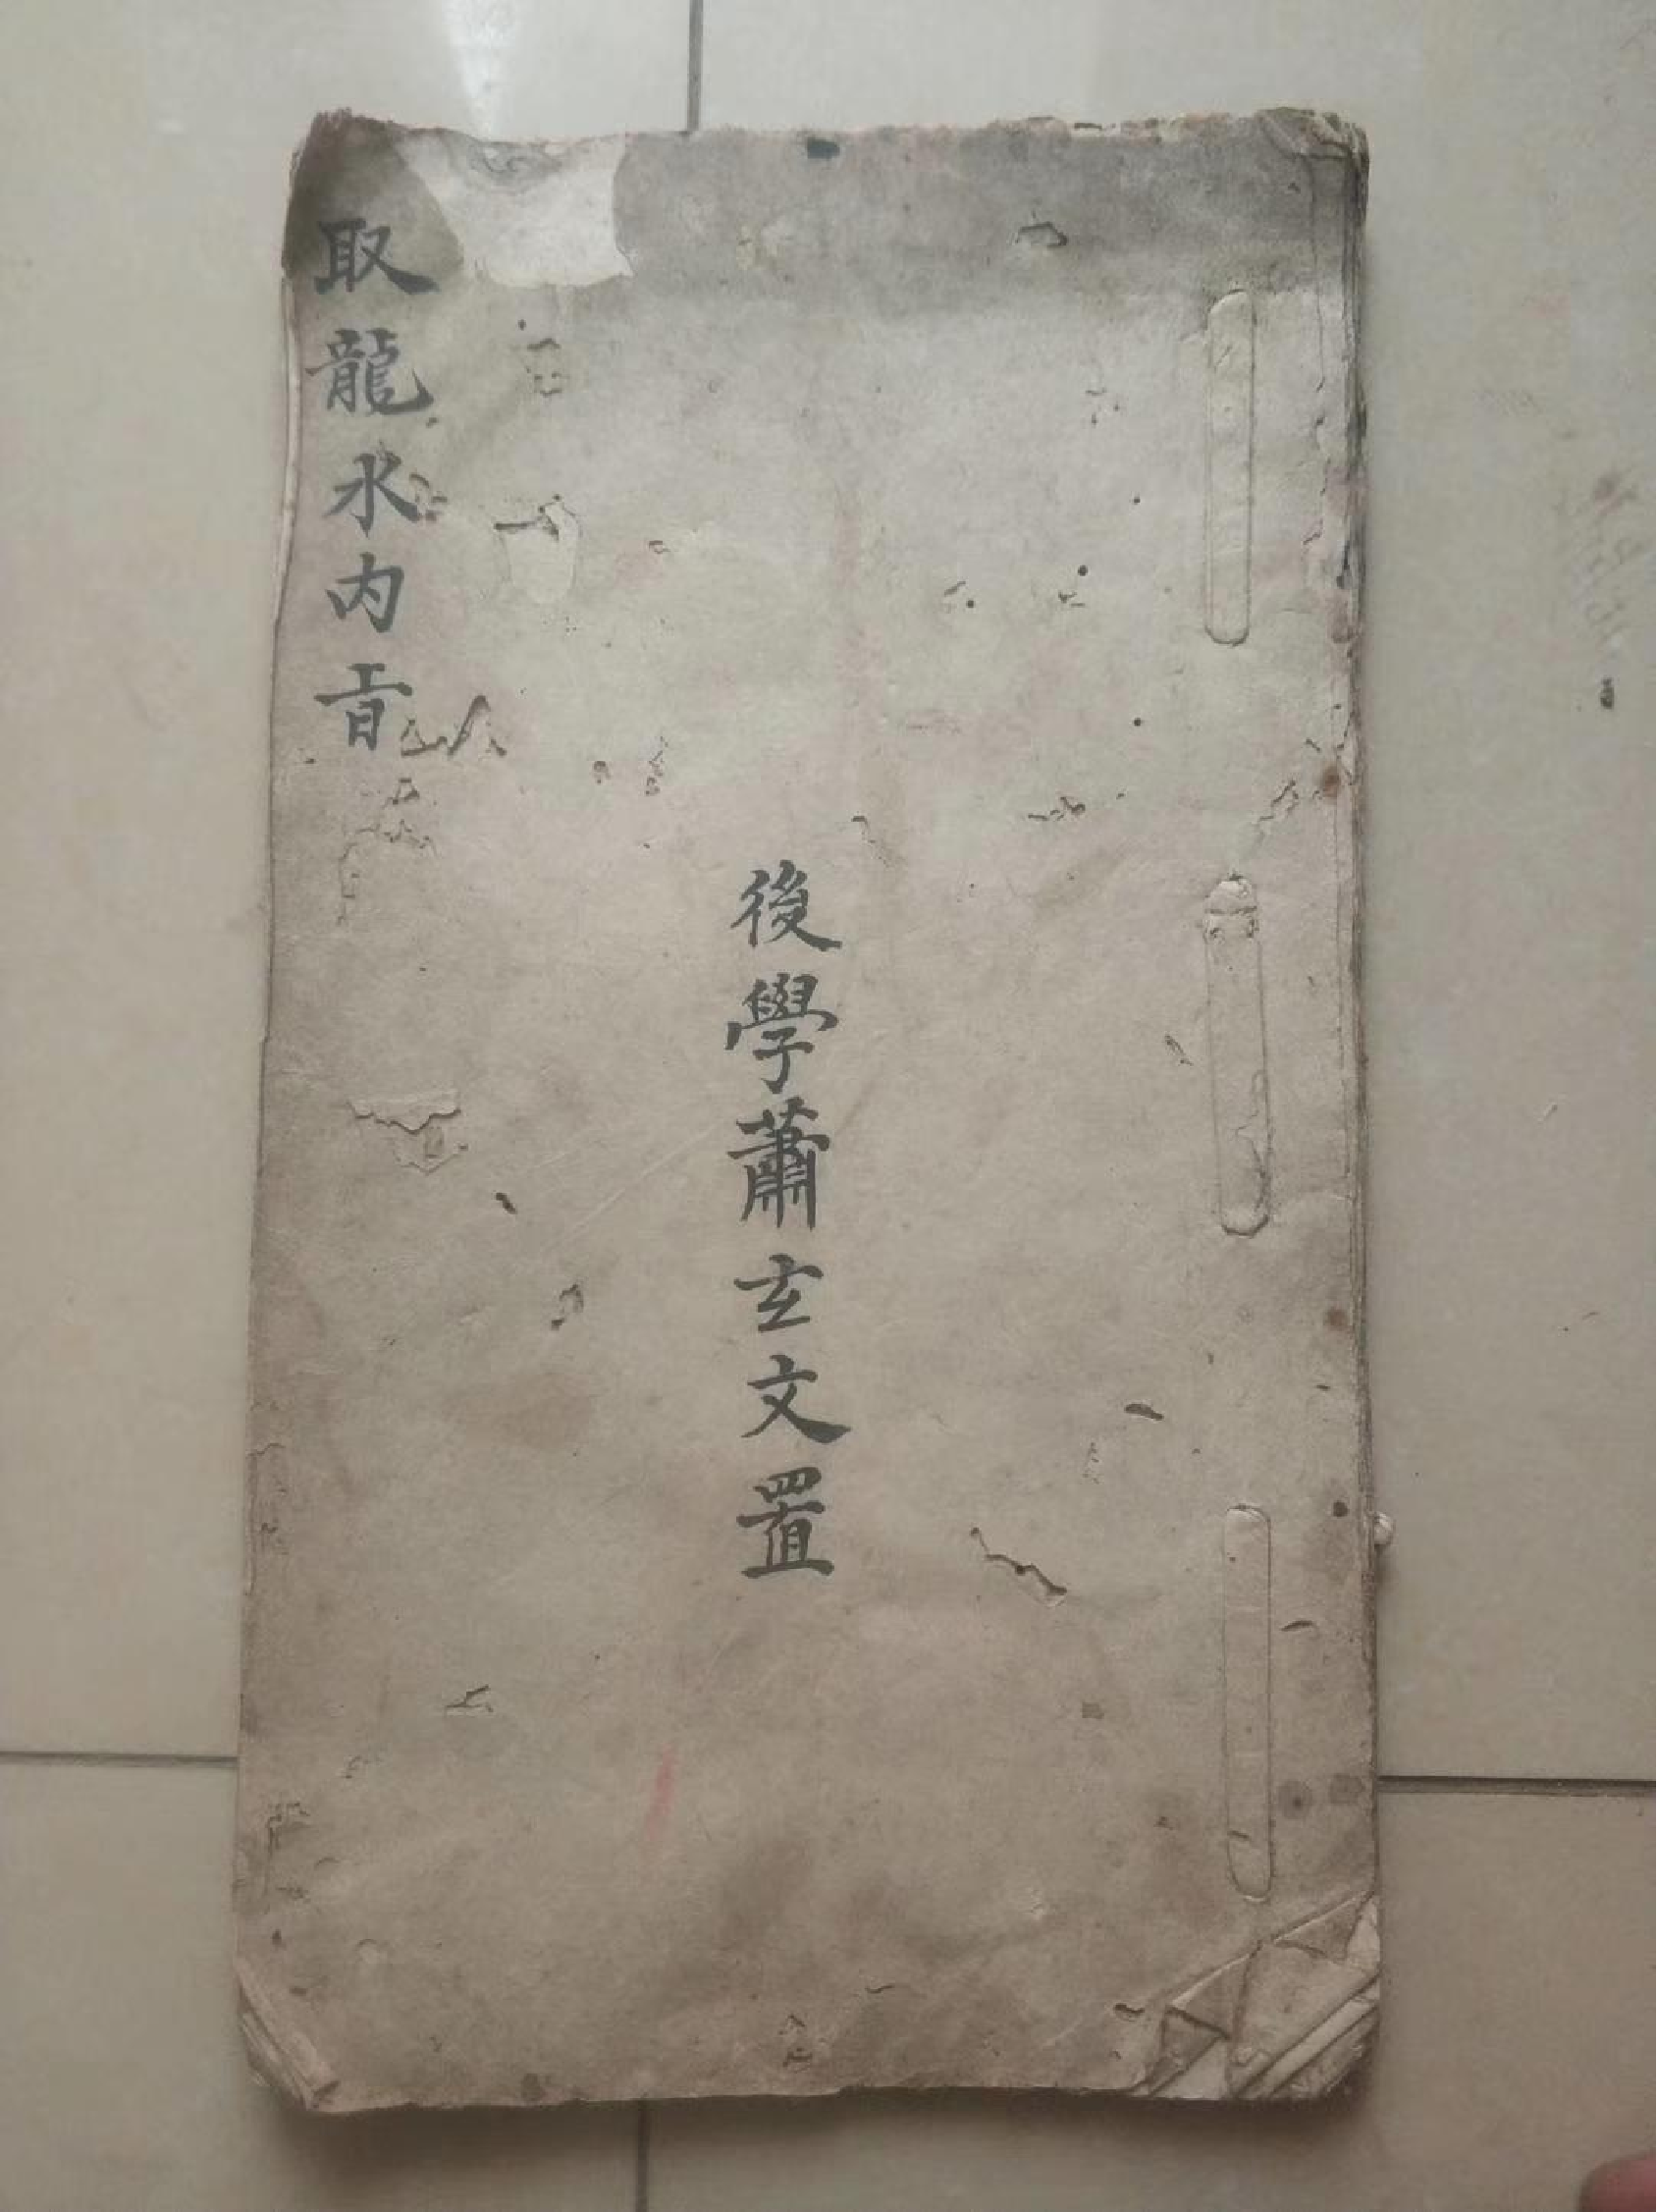 取龍水内㫖
後學蕭玄文置